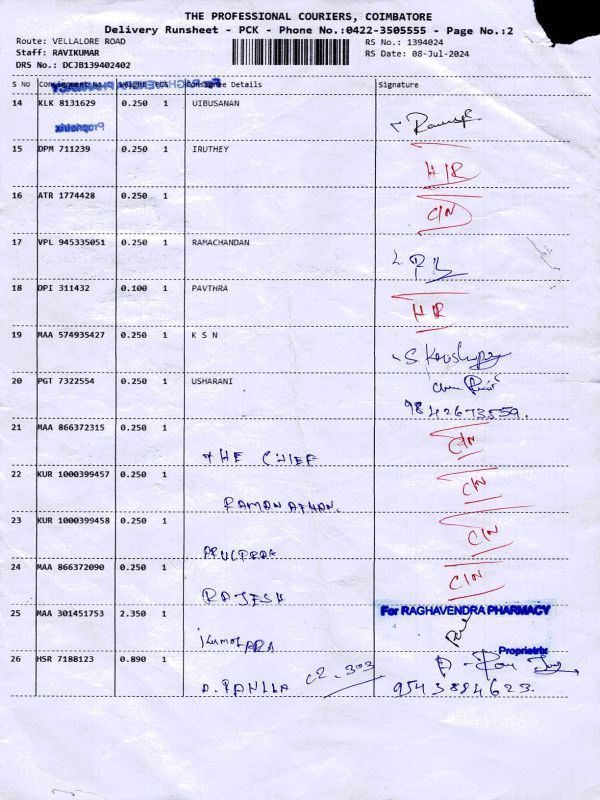 THE PROFESSIONAL COURIERS, COIMBATORE
Delivery Runsheet - PCK - Phone No.:0422-3505555 - Page No.:2
Route: VELLALORE ROAD
RS No.: 1394024
Staff: RAVIKUMAR
RS Date: 08-Jul-2024
DRS No.: DCJB139402402
S No Consignment No. Weight PCS Consignee Details Signature
14 KLK 8131629 0.250 1 UIBUSANAN
Proprietrix
15 DPM 711239 0.250 1 IRUTHEY
H/R
16 ATR 1774428 0.250 1
C/N
17 VPL 945335051 0.250 1 RAMACHANDAN
18 DPI 311432 0.100 1 PAVTHRA
HR
19 MAA 574935427 0.250 1 K S N
20 PGT 7322554 0.250 1 USHARANI
9842673559.
21 MAA 866372315 0.250 1 THE CHIEF
C/N
22 KUR 1000399457 0.250 1 RAMANATHAN.
C/N
23 KUR 1000399458 0.250 1
C/N
24 MAA 866372090 0.250 1 RAJESH
C/N
25 MAA 301451753 2.350 1
For RAGHAVENDRA PHARMACY
Proprietrix
26 HSR 7188123 0.890 1
9543884623.